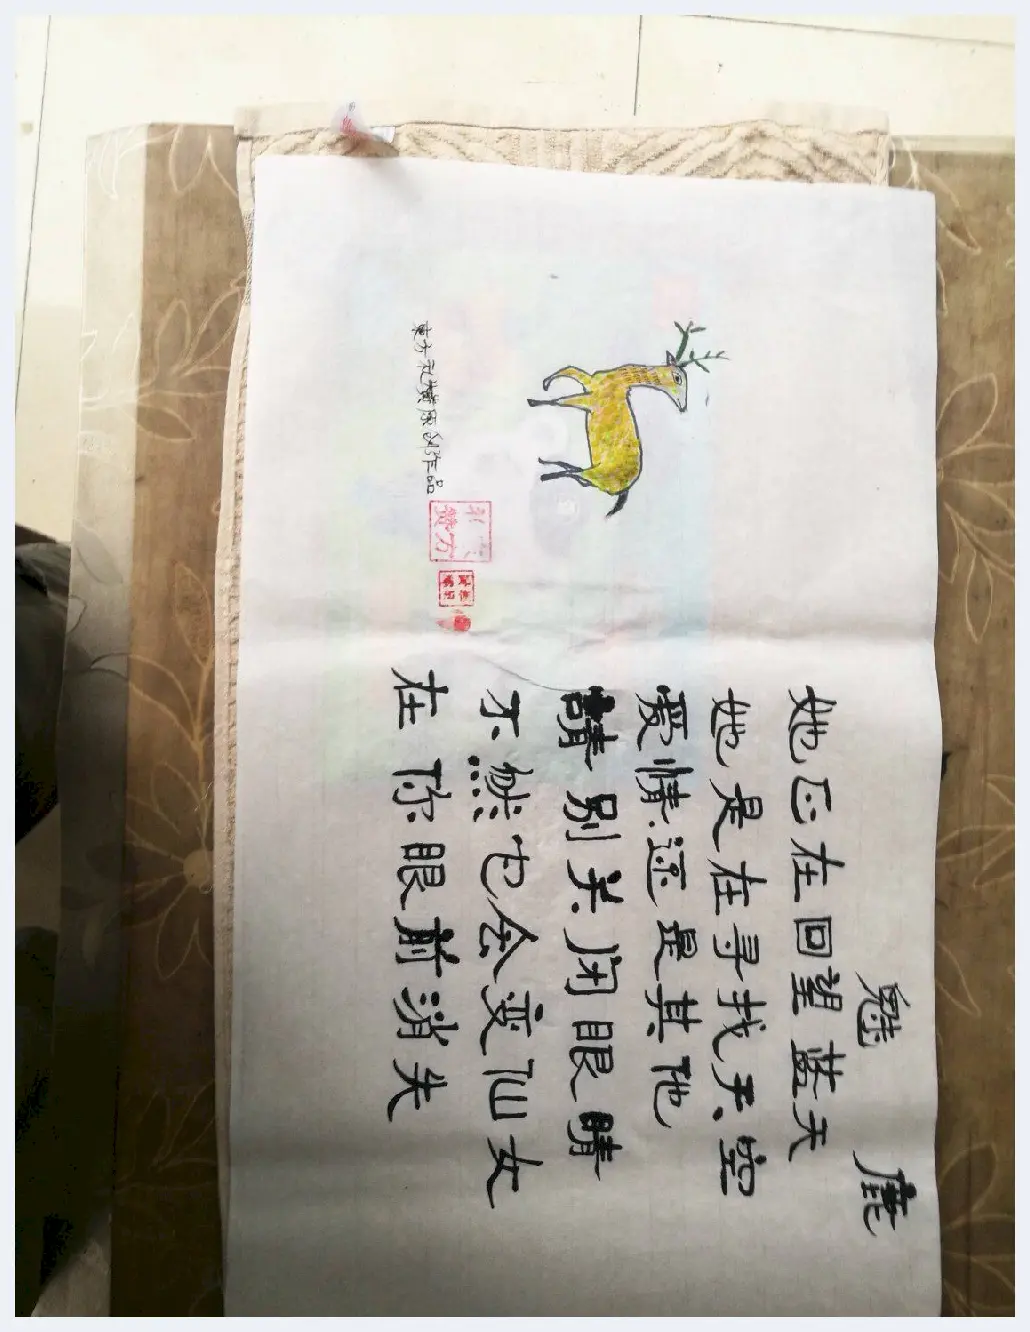 魅鹿
她正在回望蓝天
她是在寻找天空
爱情还是其他
請别关闭眼睛
不然也会变仙女
在你眼前消失
東方礼赞原创作品